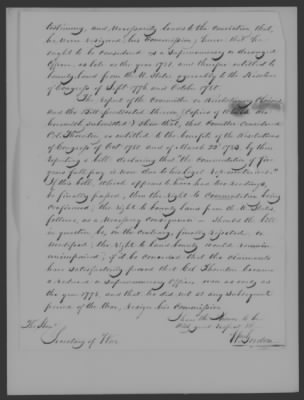 testimony, and necessarily leads to the conviction that,
he never resigned his Commission; hence that he
ought to be considered as a Supernumerary or deranged
Officer, as late as the year 1778 and therefore entitled to
bounty land from the U States agreeably to the Resolves
of Congress of Sept. 1776 and October 1780.
The Report of the Committee on Revolutionary Claims
and the Bill predicated thereon (Copies of which are
herewith submitted) Shew that, that Committee considered
Col. Thornton as entitled to the benefits of the Resolutions
of Congress of Oct 1780 and of March 22d 1783, by their
reporting a bill, declaring that "the Commutation of Five
years full pay is now due to his legal representatives."
If this bill, which appears to have had two readings,
be finally passed, thus the Right to Commutation being
Confirmed; the Right to bounty land from the U. States
follows, as a necessary Consequence – Should the bill
in question be, on the contrary, finally rejected, or
modified; the Right to land bounty would remain
unimpaired; if it be conceded that the documents
have satisfactorily proved that Col Thornton became
a reduced or Supernumerary Officer even as early as
the year 1778, and that he did not at any Subsequent
period of the War, resign his Commission
I have the honor to be
With great respect &c
The Hon.
Secretary of War
W Gordon